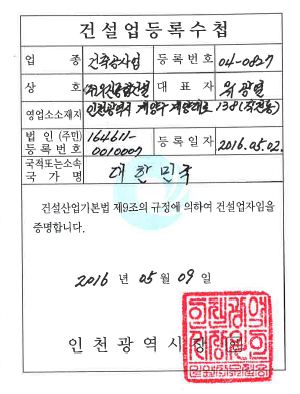 건설업등록수첩
업 종 건축공사업 등록번호 04-0827
상 호 대표자
영업소소재지 인천광역시 계양구 계양대로 138
법인(주민)등록번호 164611-0010007 등록일자 2016.05.02.
국적또는소속국가명 대한민국
건설산업기본법 제9조의 규정에 의하여 건설업자임을
증명합니다.
2016 년 05 월 09 일
인천광역시장